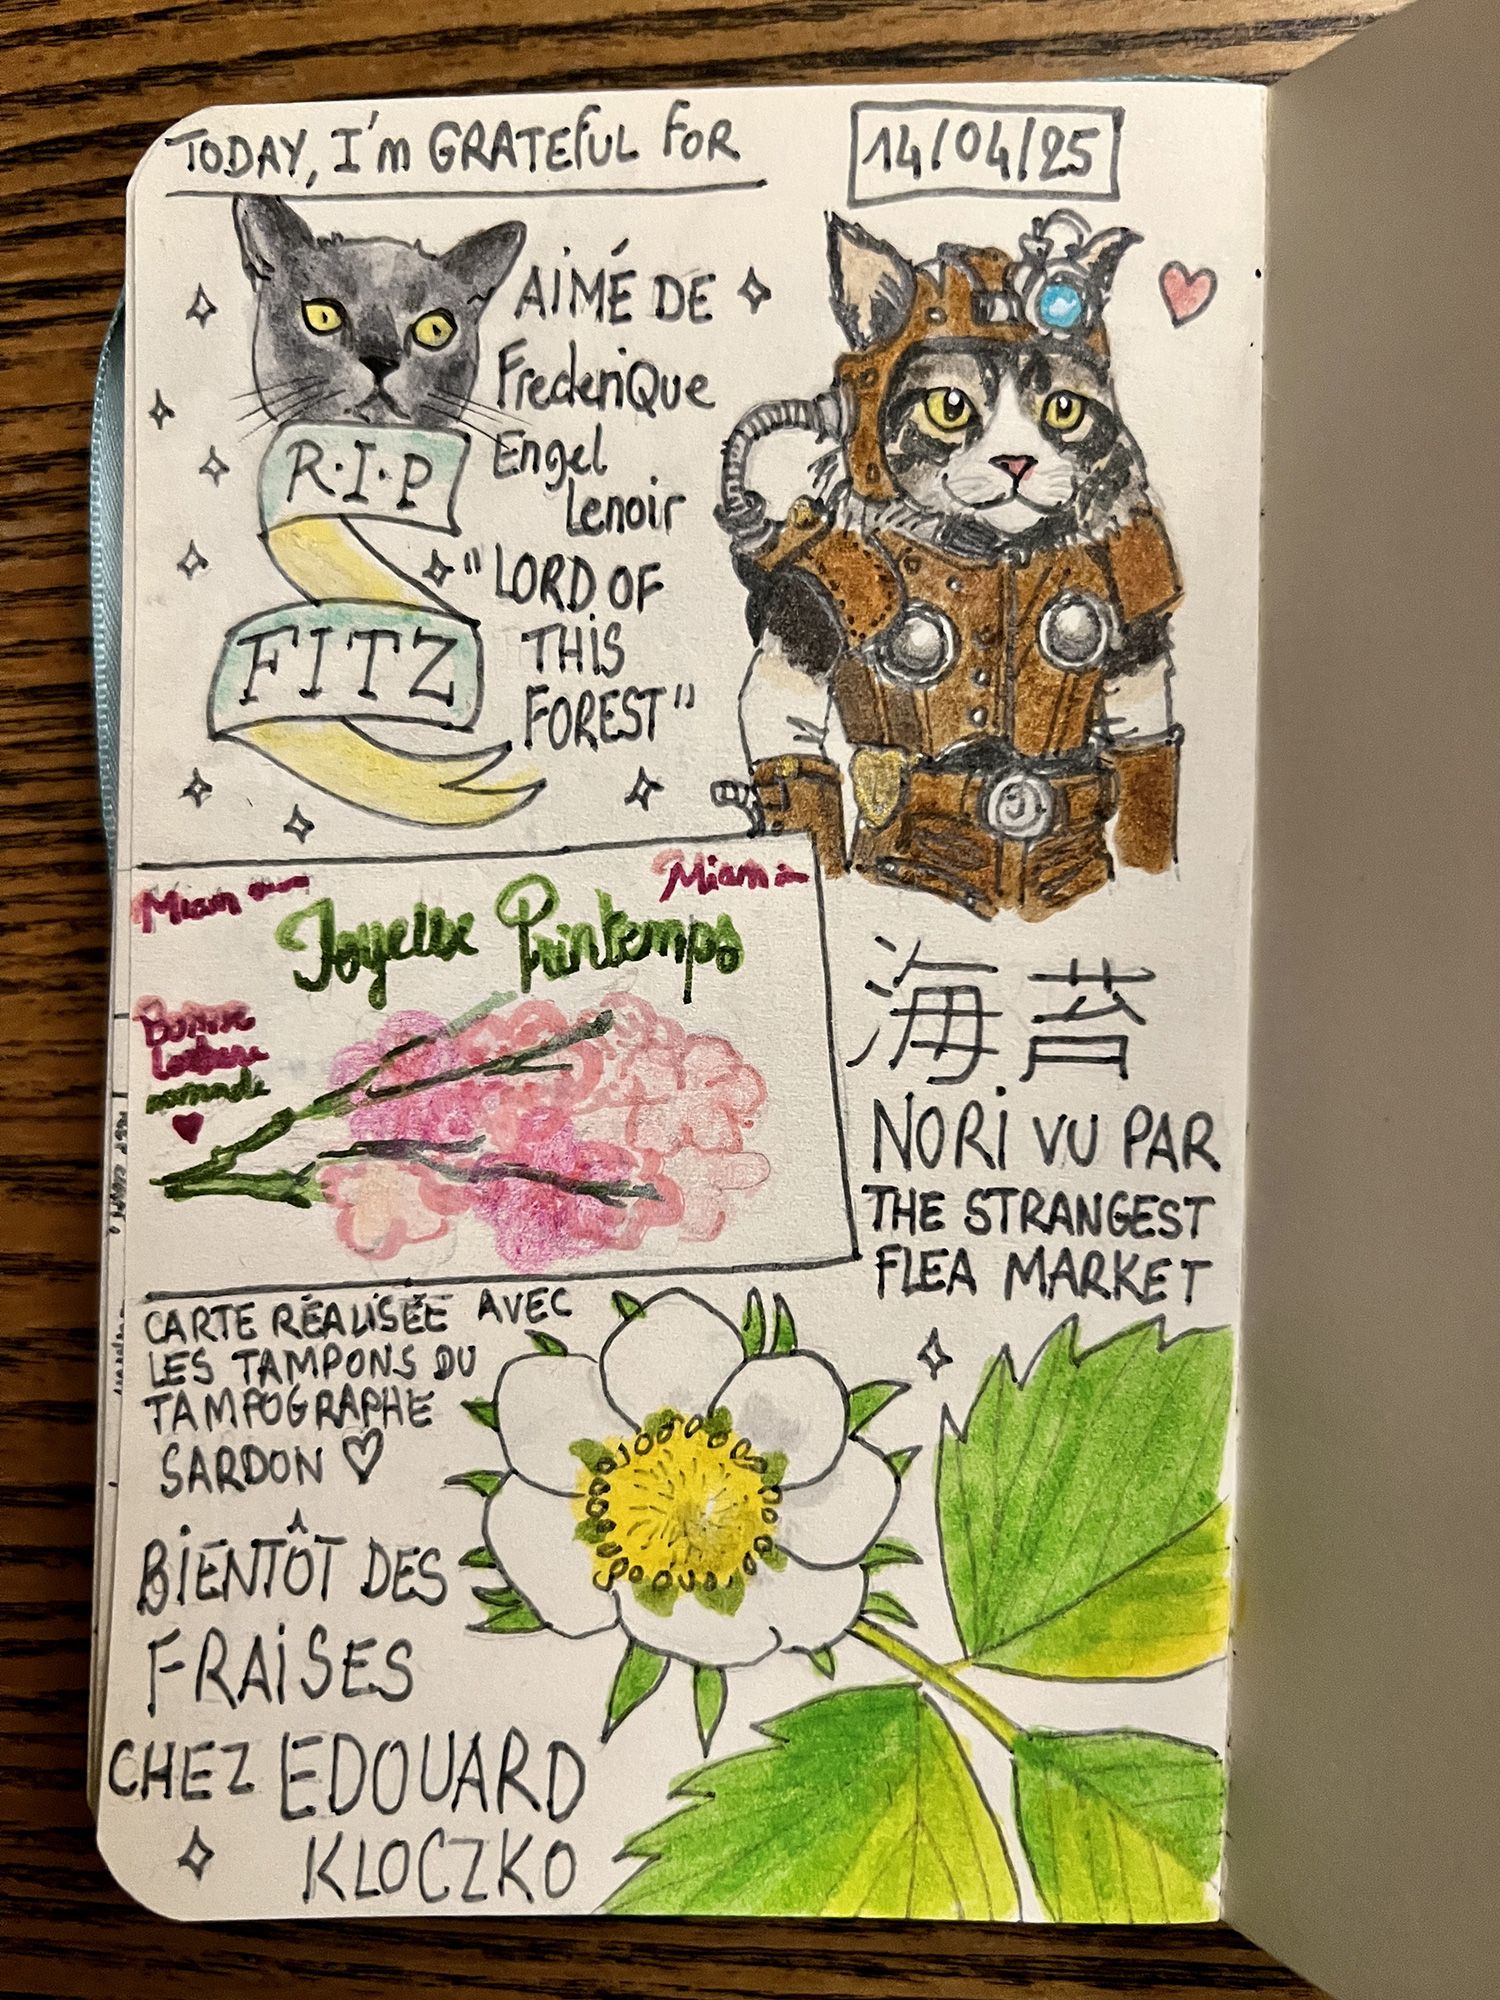 TODAY, I'm GRATEFUL FOR
14/04/25
AIMÉ DE
FrederiQue
Engel
Lenoir
"LORD OF
THIS
FOREST"
R.I.P
FITZ
Miam
Miam
Joyeux Printemps
Bonne
海苔
NORI VU PAR
THE STRANGEST
FLEA MARKET
CARTE RÉALISÉE AVEC
LES TAMPONS DU
TAMPOGRAPHE
SARDON ♡
BIENTÔT DES
FRAISES
CHEZ EDOUARD
KLOCZKO